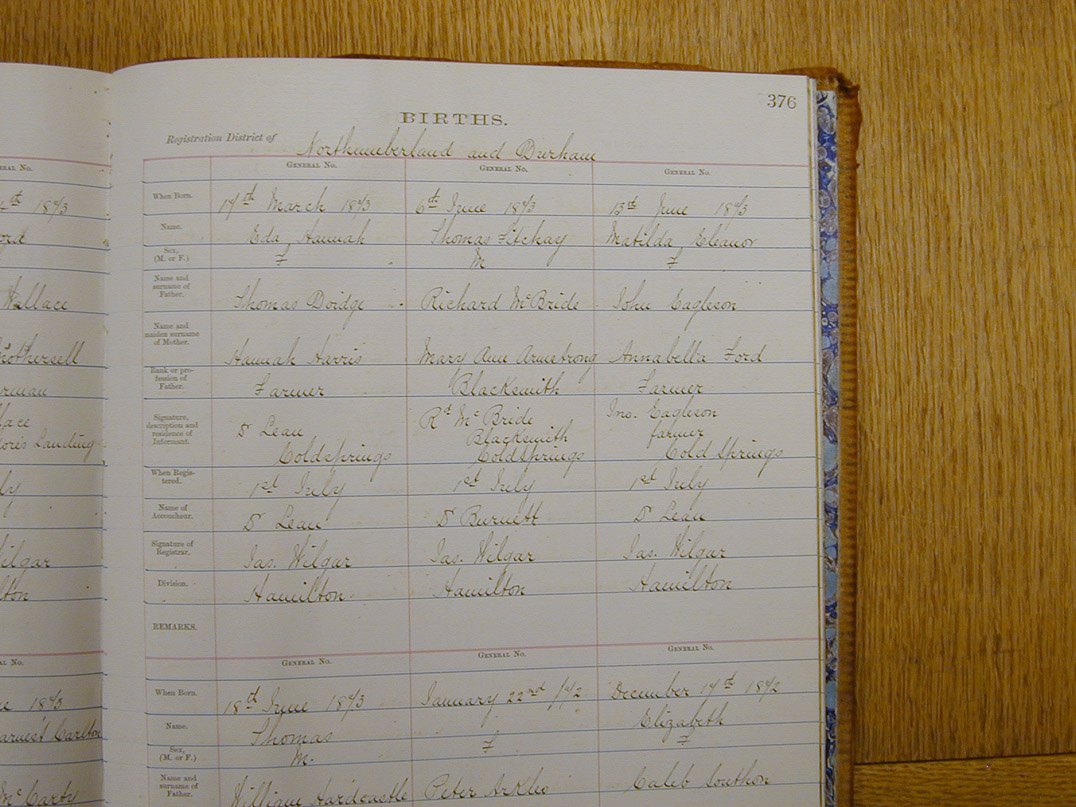 376
BIRTHS.
Registration District of Northumberland and Durham
ERAL No. GENERAL No. GENERAL No. GENERAL No.
th 1873 When Born. 17th March 1873 6th June 1873 13th June 1873
ord Name. Eda Hannah Thomas Fitchay Matilda Eleanor
Sex, (M. or F.) F M F
Wallace Name and surname of Father. Thomas Doidge Richard McBride John Eagleson
Name and maiden surname of Mother. Hannah Harris Mary Ann Armstrong Annabella Ford
rman Rank or profession of Father. Farmer Blacksmith Farmer
lace Signature, description and residence of Informant. Dr Leau Rd McBride Jno. Eagleson
Blacksmith farmer
Landing Coldsprings Coldsprings Cold Springs
ly When Registered. 1st July 1st July 1st July
Name of Accoucheur. Dr Leau Dr Burnett Dr Leau
Wilgar Signature of Registrar. Jas. Wilgar Jas. Wilgar Jas. Wilgar
lton Division. Hamilton Hamilton Hamilton
REMARKS.
AL No. GENERAL No. GENERAL No. GENERAL No.
ne 1873 When Born. 18th June 1873 January 22nd /72 December 17th 1872
Margaret Carlton Name. Thomas Elizabeth
Sex, (M. or F.) M. F F
McCarty Name and surname of Father. William Hardcastle Peter Arkles Caleb Southon